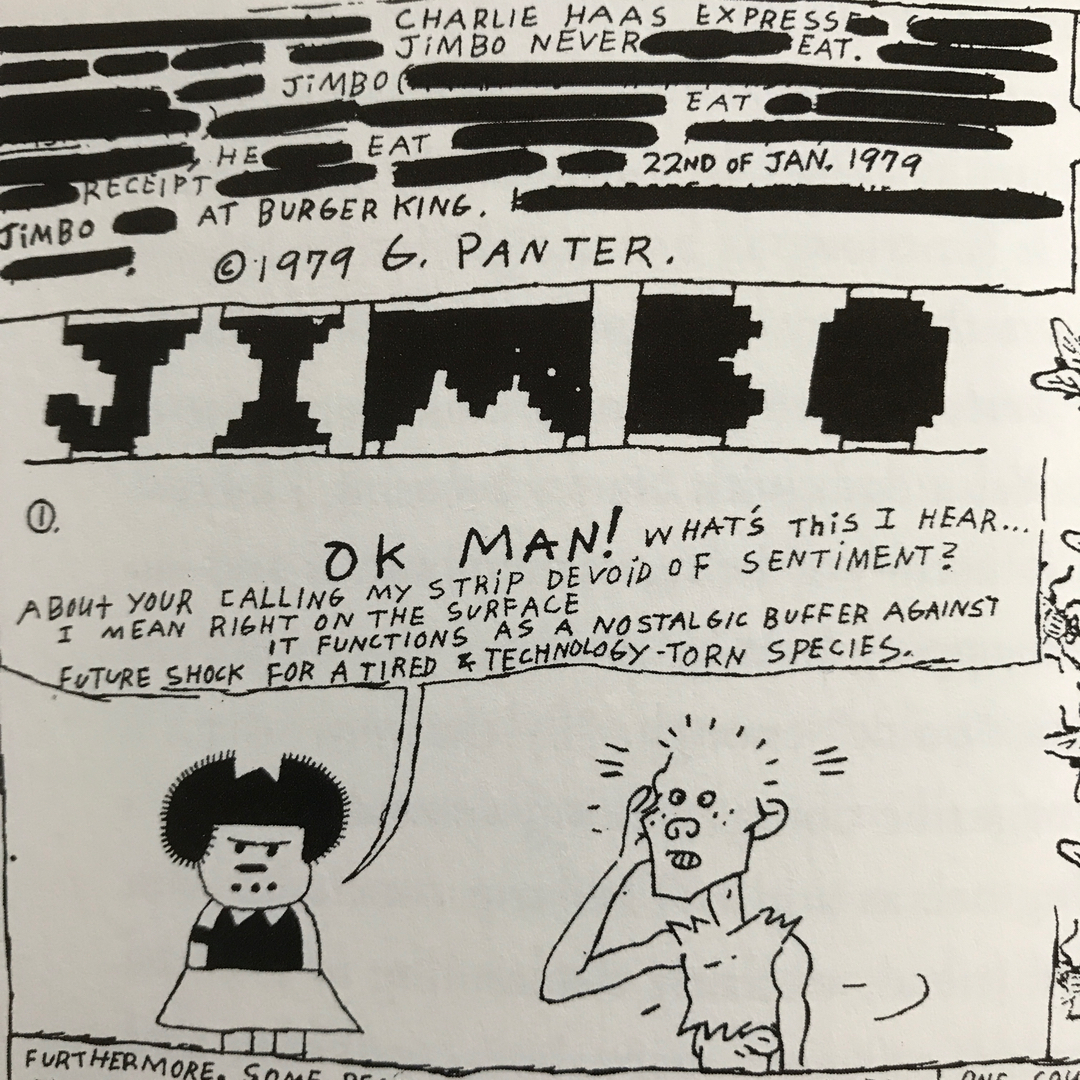 CHARLIE HAAS EXPRESSE
JiMBO NEVER EAT.
JiMBO (
EAT
, HE EAT
22ND OF JAN. 1979
RECEIPT
JiMBO AT BURGER KING.
©1979 G. PANTER.
JIMBO
①.
OK MAN! WHAT'S THiS I HEAR...
ABOUT YOUR CALLING MY STRiP DEVOiD OF SENTiMENT?
I MEAN RIGHT ON THE SURFACE
IT FUNCTIONS AS A NOSTALGIC BUFFER AGAINST
FUTURE SHOCK FOR A TIRED & TECHNOLOGY-TORN SPECIES.
FURTHERMORE, SOME
ONE